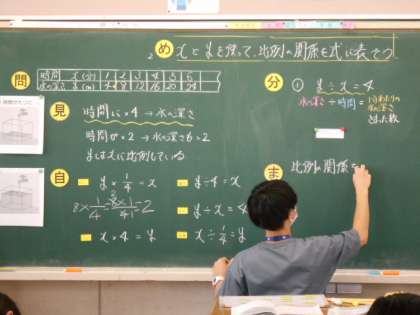 め xとyを使って、比例の関係を式に表そう
問
時間 x(分) 1 2 3 4 5 6
水の深さ y(cm) 4 8 12 16 20 24
見 時間に×4→水の深さ
時間が×2→水の深さも×2
yはxに比例している
自 y×1/4=x
8×1/4=8×1/4=2
x×4=y
y÷4=x
y÷x=4
x÷1/4=y
分 ① y÷x=4
水の深さ÷時間=1分あたりの水の深さ
ま 比例の関係を